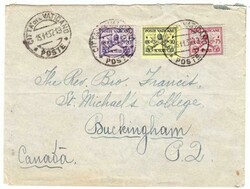 CITTA DEL VATICANO
POSTE
POSTE
POSTE
The Rev. Bro. Francis,
St Michael's College
Buckingham
P.Q.
Canada.